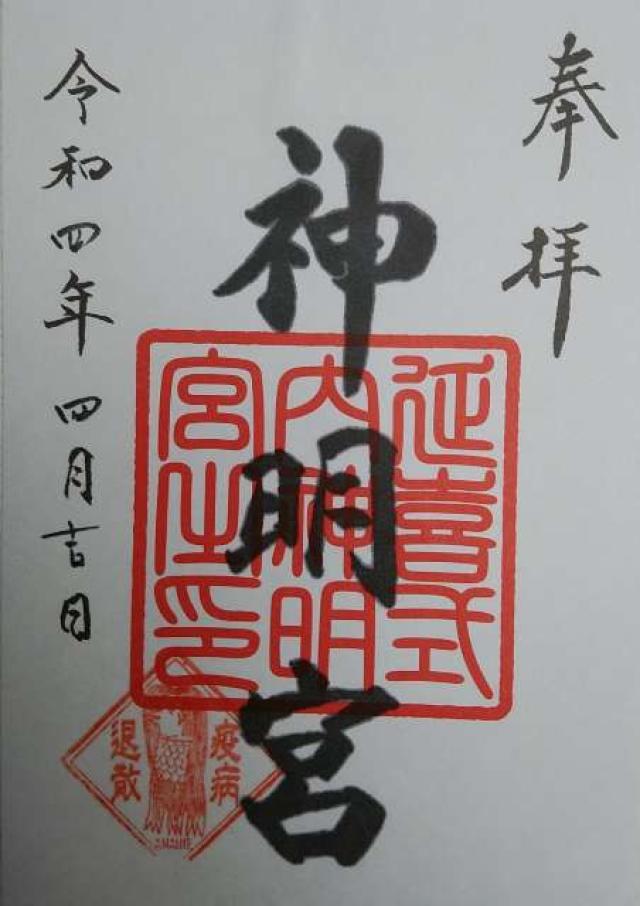 奉拝
神明宮
延喜式
内神明
宮之印
令和四年 四月吉日
疫病
退散